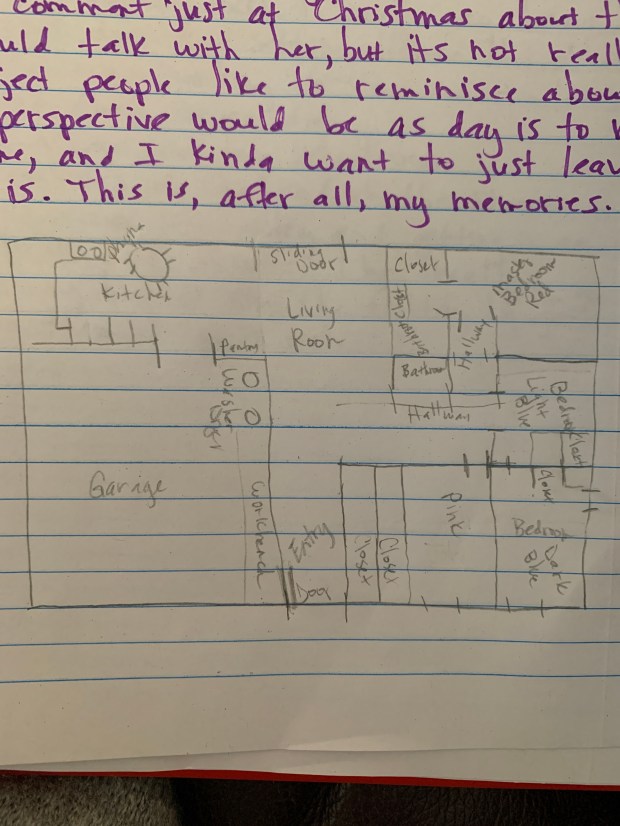 comment just at Christmas about t
uld talk with her, but its not reall
ject people like to reminisce abou
perspective would be as day is to
me, and I kinda want to just leav
is. This is, after all, my memories.
Sliding Door
Closet
Kitchen
Living Room
Hallway
Pantry
Bathroom
Washer
Hallway
Bedroom Light Blue
Closet
Garage
Workbench
Entry
Closet
Closet
Pink
Closet
Bedroom Dark Blue
Door